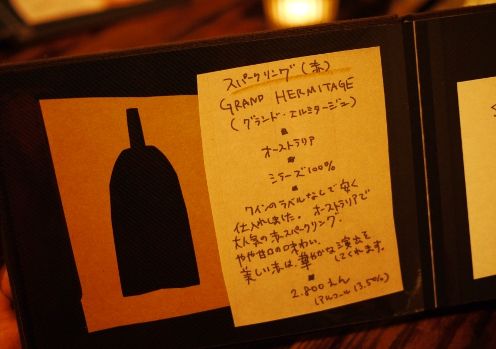 スパークリング(赤)
GRAND HERMITAGE
(グランド・エルミタージュ)
オーストラリア
シラーズ100%
ワインのラベルなしで安く
仕入れました。オーストラリアで
大人気の赤スパークリング。
やや甘口の味わい。
美しい赤は、華やかな演出を
してくれます。
2.800えん
(アルコール13.5%)